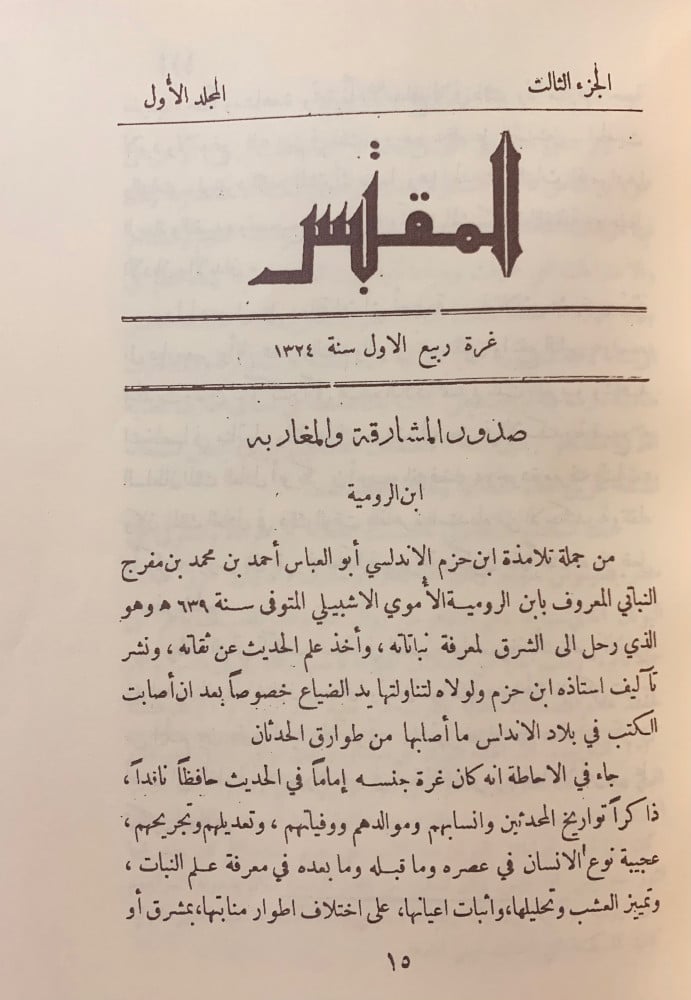 الجزء الثالث
المجلد الأول
المقتبس
غرة ربيع الاول سنة ١٣٢٤
صدور المشارقة والمغاربة
ابن الرومية
من جملة تلامذة ابن حزم الاندلسي أبو العباس أحمد بن محمد بن مفرج
النباتي المعروف بابن الرومية الأموي الاشبيلي المتوفى سنة ٦٣٩ ه وهو
الذي رحل الى الشرق لمعرفة نباتاته ، وأخذ علم الحديث عن ثقاته ، ونشر
تآليف استاذه ابن حزم ولولاه لتناولتها يد الضياع خصوصاً بعد ان أصابت
الكتب في بلاد الاندلس ما أصابها من طوارق الحدثان
جاء في الاحاطة انه كان غرة جنسه إماماً في الحديث حافظاً ناقداً ،
ذاكراً تواريخ المحدثين وانسابهم وموالدهم ووفياتهم ، وتعديلهم وتجريحهم ،
عجيبة نوع الانسان في عصره وما قبله وما بعده في معرفة علم النبات ،
وتمييز العشب وتحليلها، واثبات اعيانها، على اختلاف اطوار منابتها، بمشرق أو
١٥